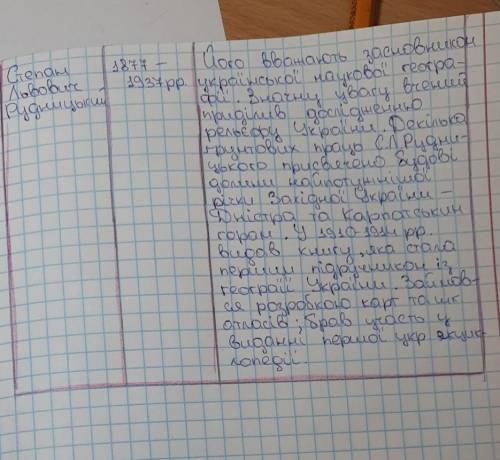 Степан
Львович
Рудницький
1877 –
1937 рр.
Його вважають засновником
української наукової геогра-
фії. Значну увагу вчений
приділив дослідженню
рельєфу України. Декілька
ґрунтових праць С.Л.Рудни-
цького присвячено будові
долини найпотужнішої
річки Західної України –
Дністра та Карпатським
горам. У 1910-1914 рр.
видав книгу, яка стала
першим підручником із
географії України. Займав-
ся розробкою карт та шк.
атласів; брав участь у
виданні першої укр. енцик
лопедії.